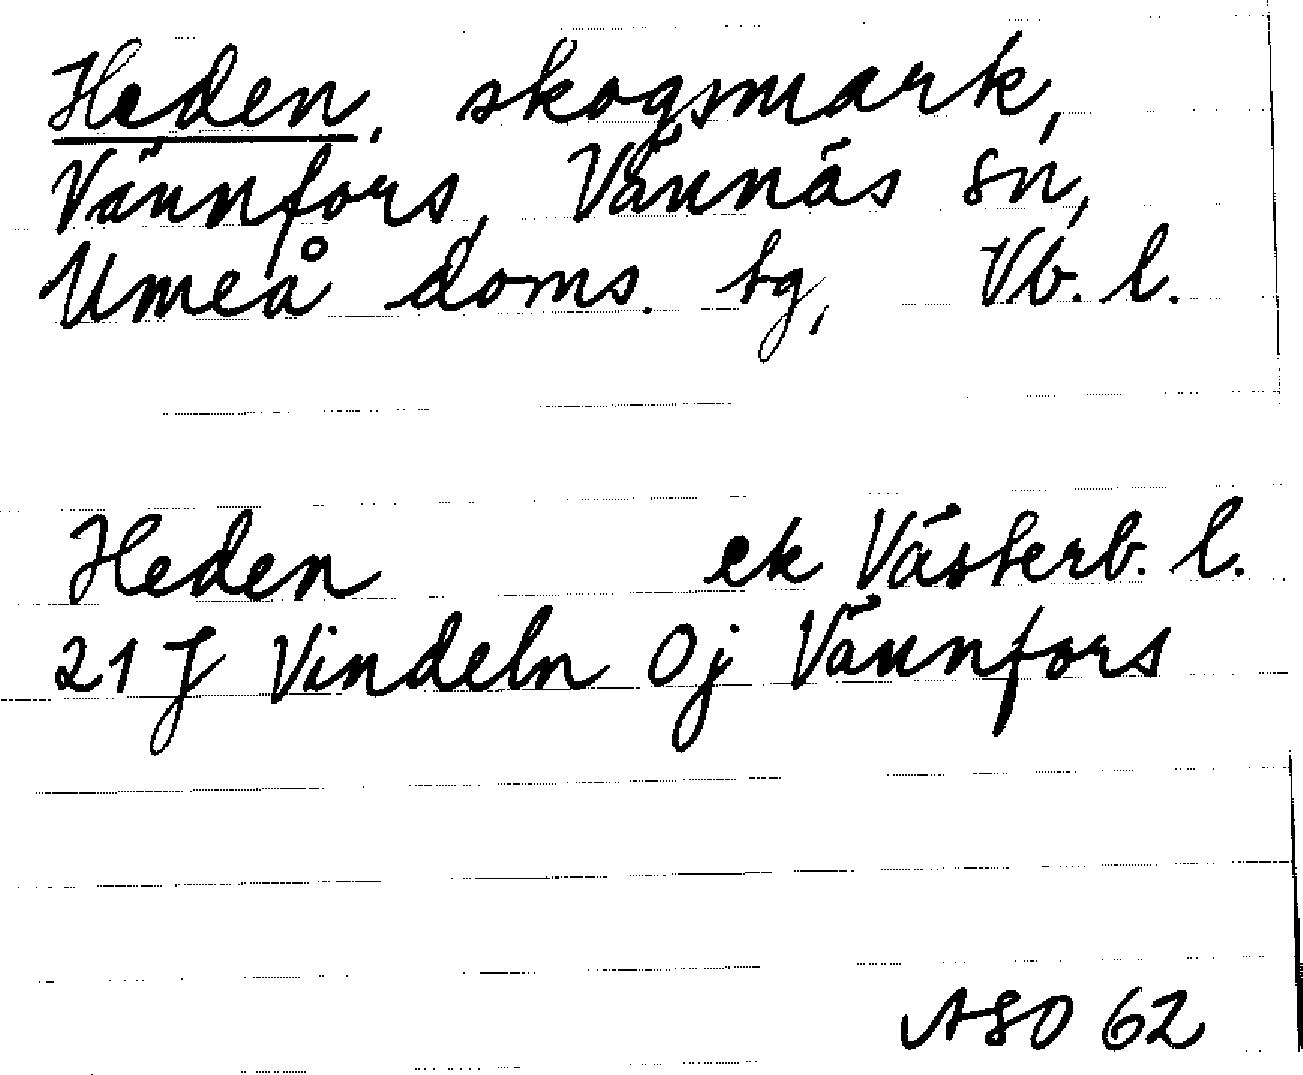 Heden, skogsmark,
Vännfors, Vännäs sn,
Umeå doms. tg, Vb. l.
Heden ek Västerb. l.
21 J Vindeln 0j Vännfors
ASO 62